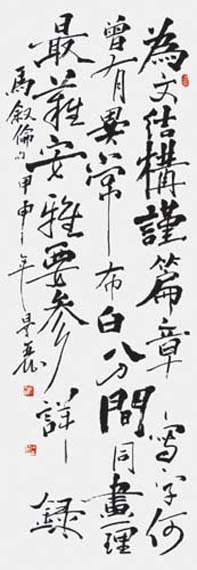 為文結構謹篇章寫字何
曾有異常布白八分間同畫理
最難安雅要參詳錄
馬敘倫句甲申年